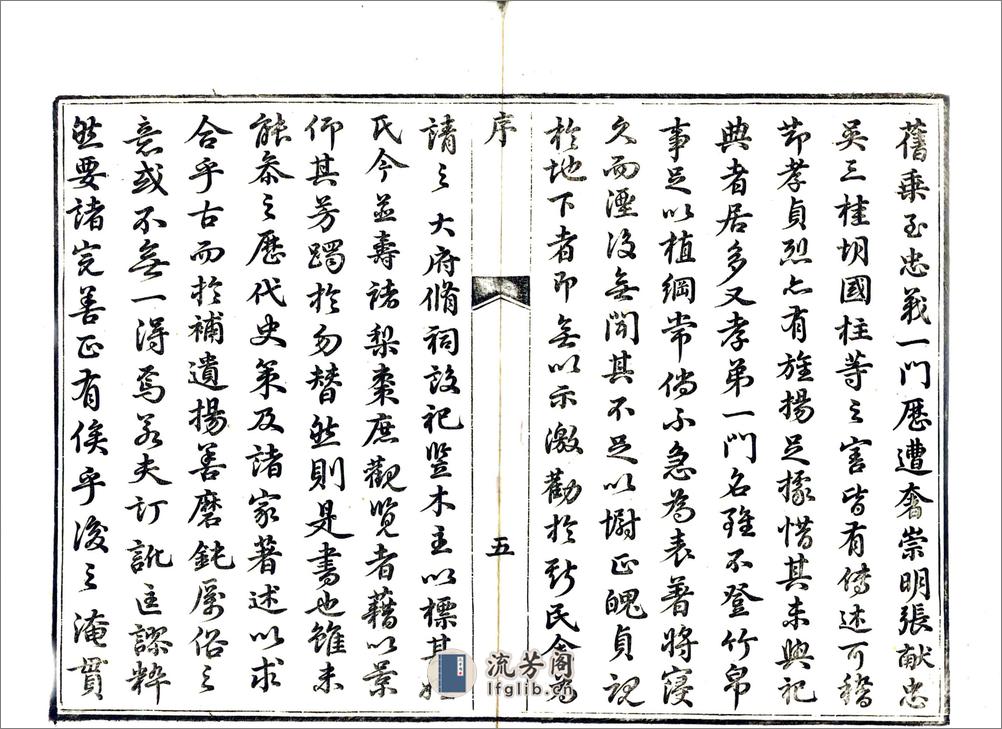 舊乘至忠義一門歷遭奢崇明張献忠
吳三桂胡國柱等之害皆有傳述可稽
節孝貞烈亦有旌揚足據惜其未與祀
典者居多又孝弟一門名雖不登竹帛
事足以植綱常倘不急為表著將寖
久而湮沒無聞其不足以慰正魄貞魂
於地下者即無以示激勸於新民僉為
序
五
請之大府脩祠設祀豎木主以標其姓
氏今並壽諸梨棗庶觀覽者藉以景
仰其芳躅於勿替然則是書也雖未
能叅之歷代史策及諸家著述以求
合乎古而於補遺揚善磨鈍厲俗之
意或不無一得焉若夫訂訛正謬粹
然要諸完善正有俟乎後之淹貫
流芳閣
lfglib.cn